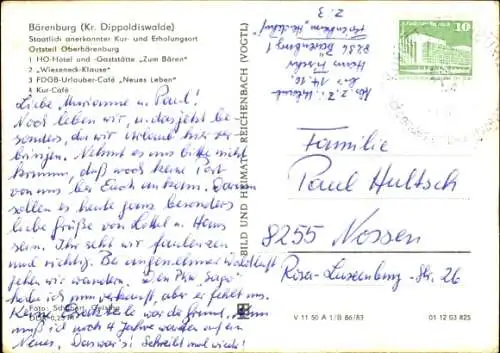 Bärenburg (Kr. Dippoldiswalde)
Staatlich anerkannter Kur- und Erholungsort
Ortsteil Oberbärenburg
1 HO-Hotel und -Gaststätte „Zum Bären"
2 „Wieseneck-Klause"
3 FDGB-Urlauber-Café „Neues Leben"
4 Kur-Café
Liebe Marianne u. Paul!
Noch leben wir, u. das jetzt be-
sonders, da wir Urlaub hier ver-
bringen. Nehmt es uns bitte nicht
krumm, daß noch keine Post
von uns bei Euch ankam. Darum
sollen es heute ganz besonders
liebe Grüße von Lottel u. Hans
sein. Ihr seht wir faulenzen
und richtig. Bei angenehmer Waldluft
gehen wir wandern. Den
habe ich nun verkauft, aber er fehlt uns.
Keine Ersatzteile war da Nun
muß ich noch 4 Jahre warten auf ein
Neues. Das war's! Schreibt mal wieder!
Foto: Schubert, Geising
BILD UND HEIMAT REICHENBACH (VOGTL)
z. Z. Urlaub
Hans Fischer
8236 Bärenburg
10
Familie
Paul Hultsch
8255 Nossen
Rosa-Luxemburg-Str. 26
V 11 50 A 1/B 86/83 01 12 03 825